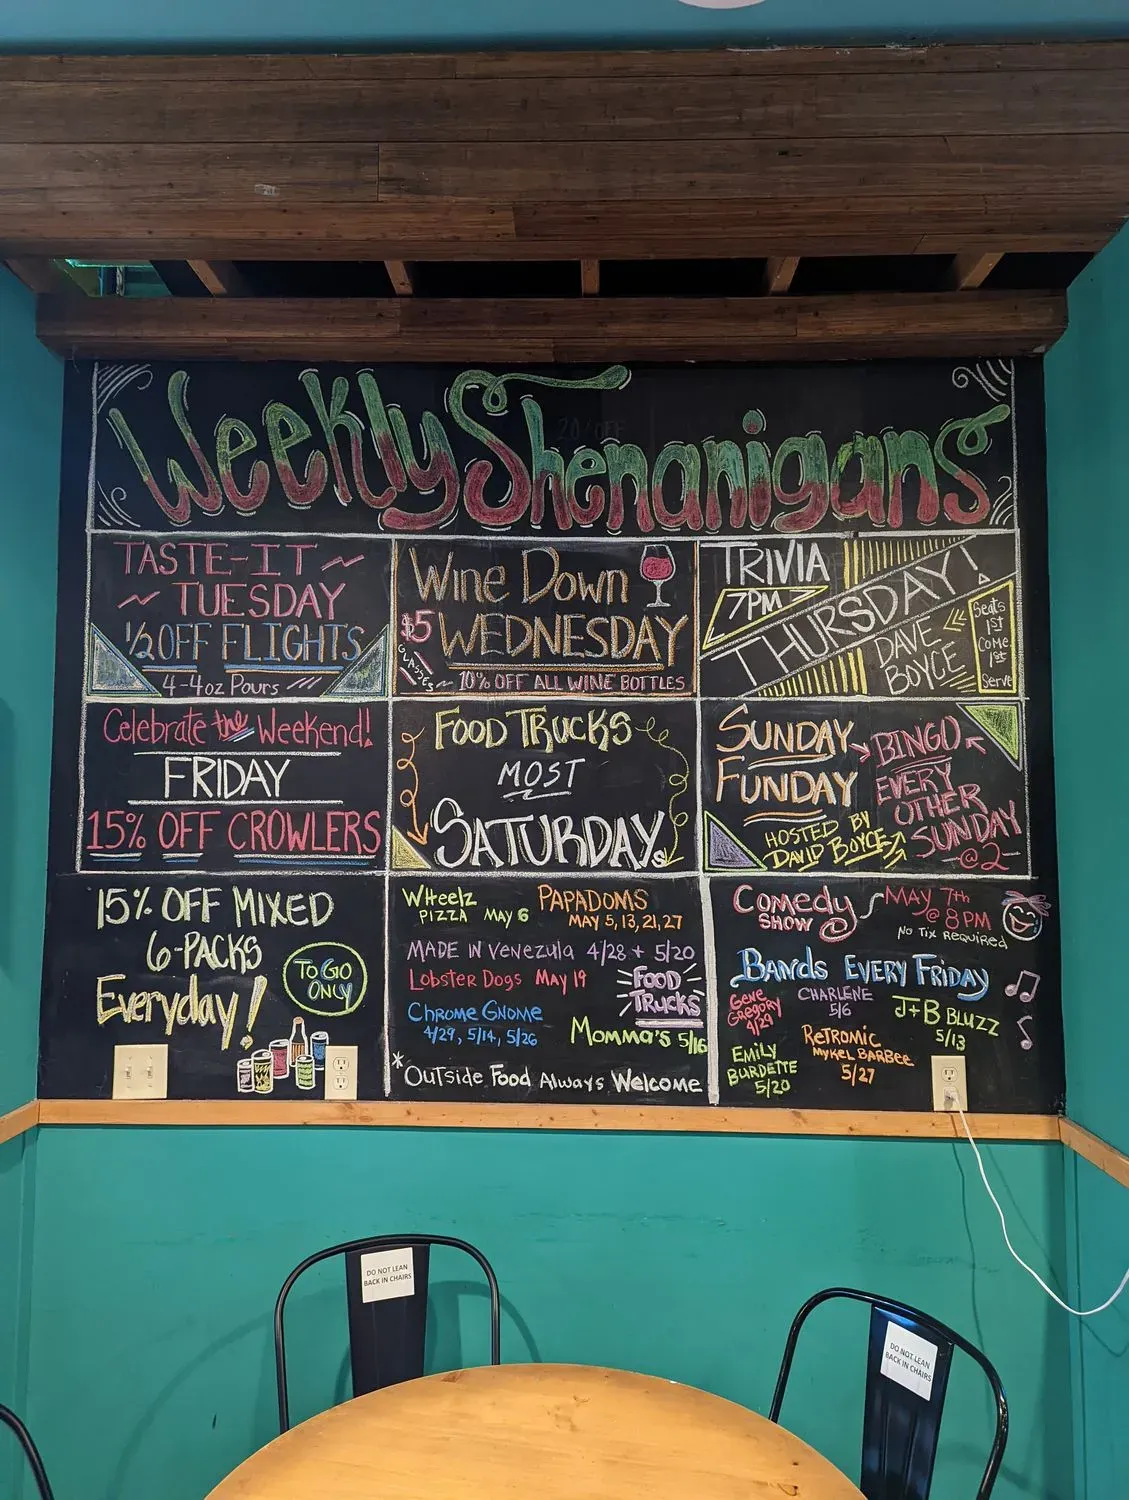 Weekly Shenanigans
TASTE-IT
TUESDAY
1/2 OFF FLIGHTS
4-4oz Pours
Wine Down
$5 WEDNESDAY
GLASSES
10% OFF ALL WINE BOTTLES
TRIVIA
7PM
THURSDAY!
DAVE
BOYCE
Seats
1st
Come
1st
Serve
Celebrate the Weekend!
FRIDAY
15% OFF CROWLERS
FOOD TRUCKS
MOST
SATURDAYs
SUNDAY
FUNDAY
HOSTED BY
DAVID BOYCE
BINGO
EVERY
OTHER
SUNDAY
@2
15% OFF MIXED
6-PACKS
Everyday!
TO GO
ONLY
WHeelz
PIZZA MAY 6
PAPADOMS
MAY 5, 13, 21, 27
MADE IN Venezula 4/28 + 5/20
Lobster Dogs MAY 19
FOOD
TRUCKS
CHROME GNOME
4/29, 5/14, 5/26
MOMMA'S 5/16
*OUTSIDE FOOD ALWAYS WELCOME
Comedy
SHOW
MAY 7th
@ 8PM
NO TIX REQUIRED
BANDS EVERY FRIDAY
Gene
Gregory
4/29
CHARLENE
5/6
J+B BLUZZ
5/13
EMILY
BURDETTE
5/20
ReTROMIC
MYKEL BARBee
5/27
DO NOT LEAN
BACK IN CHAIRS
DO NOT LEAN
BACK IN CHAIRS